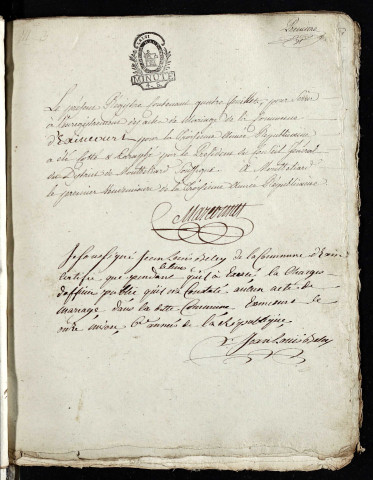 Premier
MINUTE
Le présent Registre Contenant quatre feuillets, pour Servir
à l'enregistrement des actes de Mariage de la Commune
d'Exincourt pour la troisieme année Républicaine
a été Cotté & Paraphé par le Président du Conseil Général
du District de Montbéliard
le premier Vendémiaire de la troisieme année Républicaine
Je Soussigné Jean Louis de la Commune
Certifie que pendant qu'il a Exercé la Charge
d'officier public qu'il n'a Constaté aucun acte de
mariage dans la ditte Commune
onze nivose 6e année de la République
Jean Louis